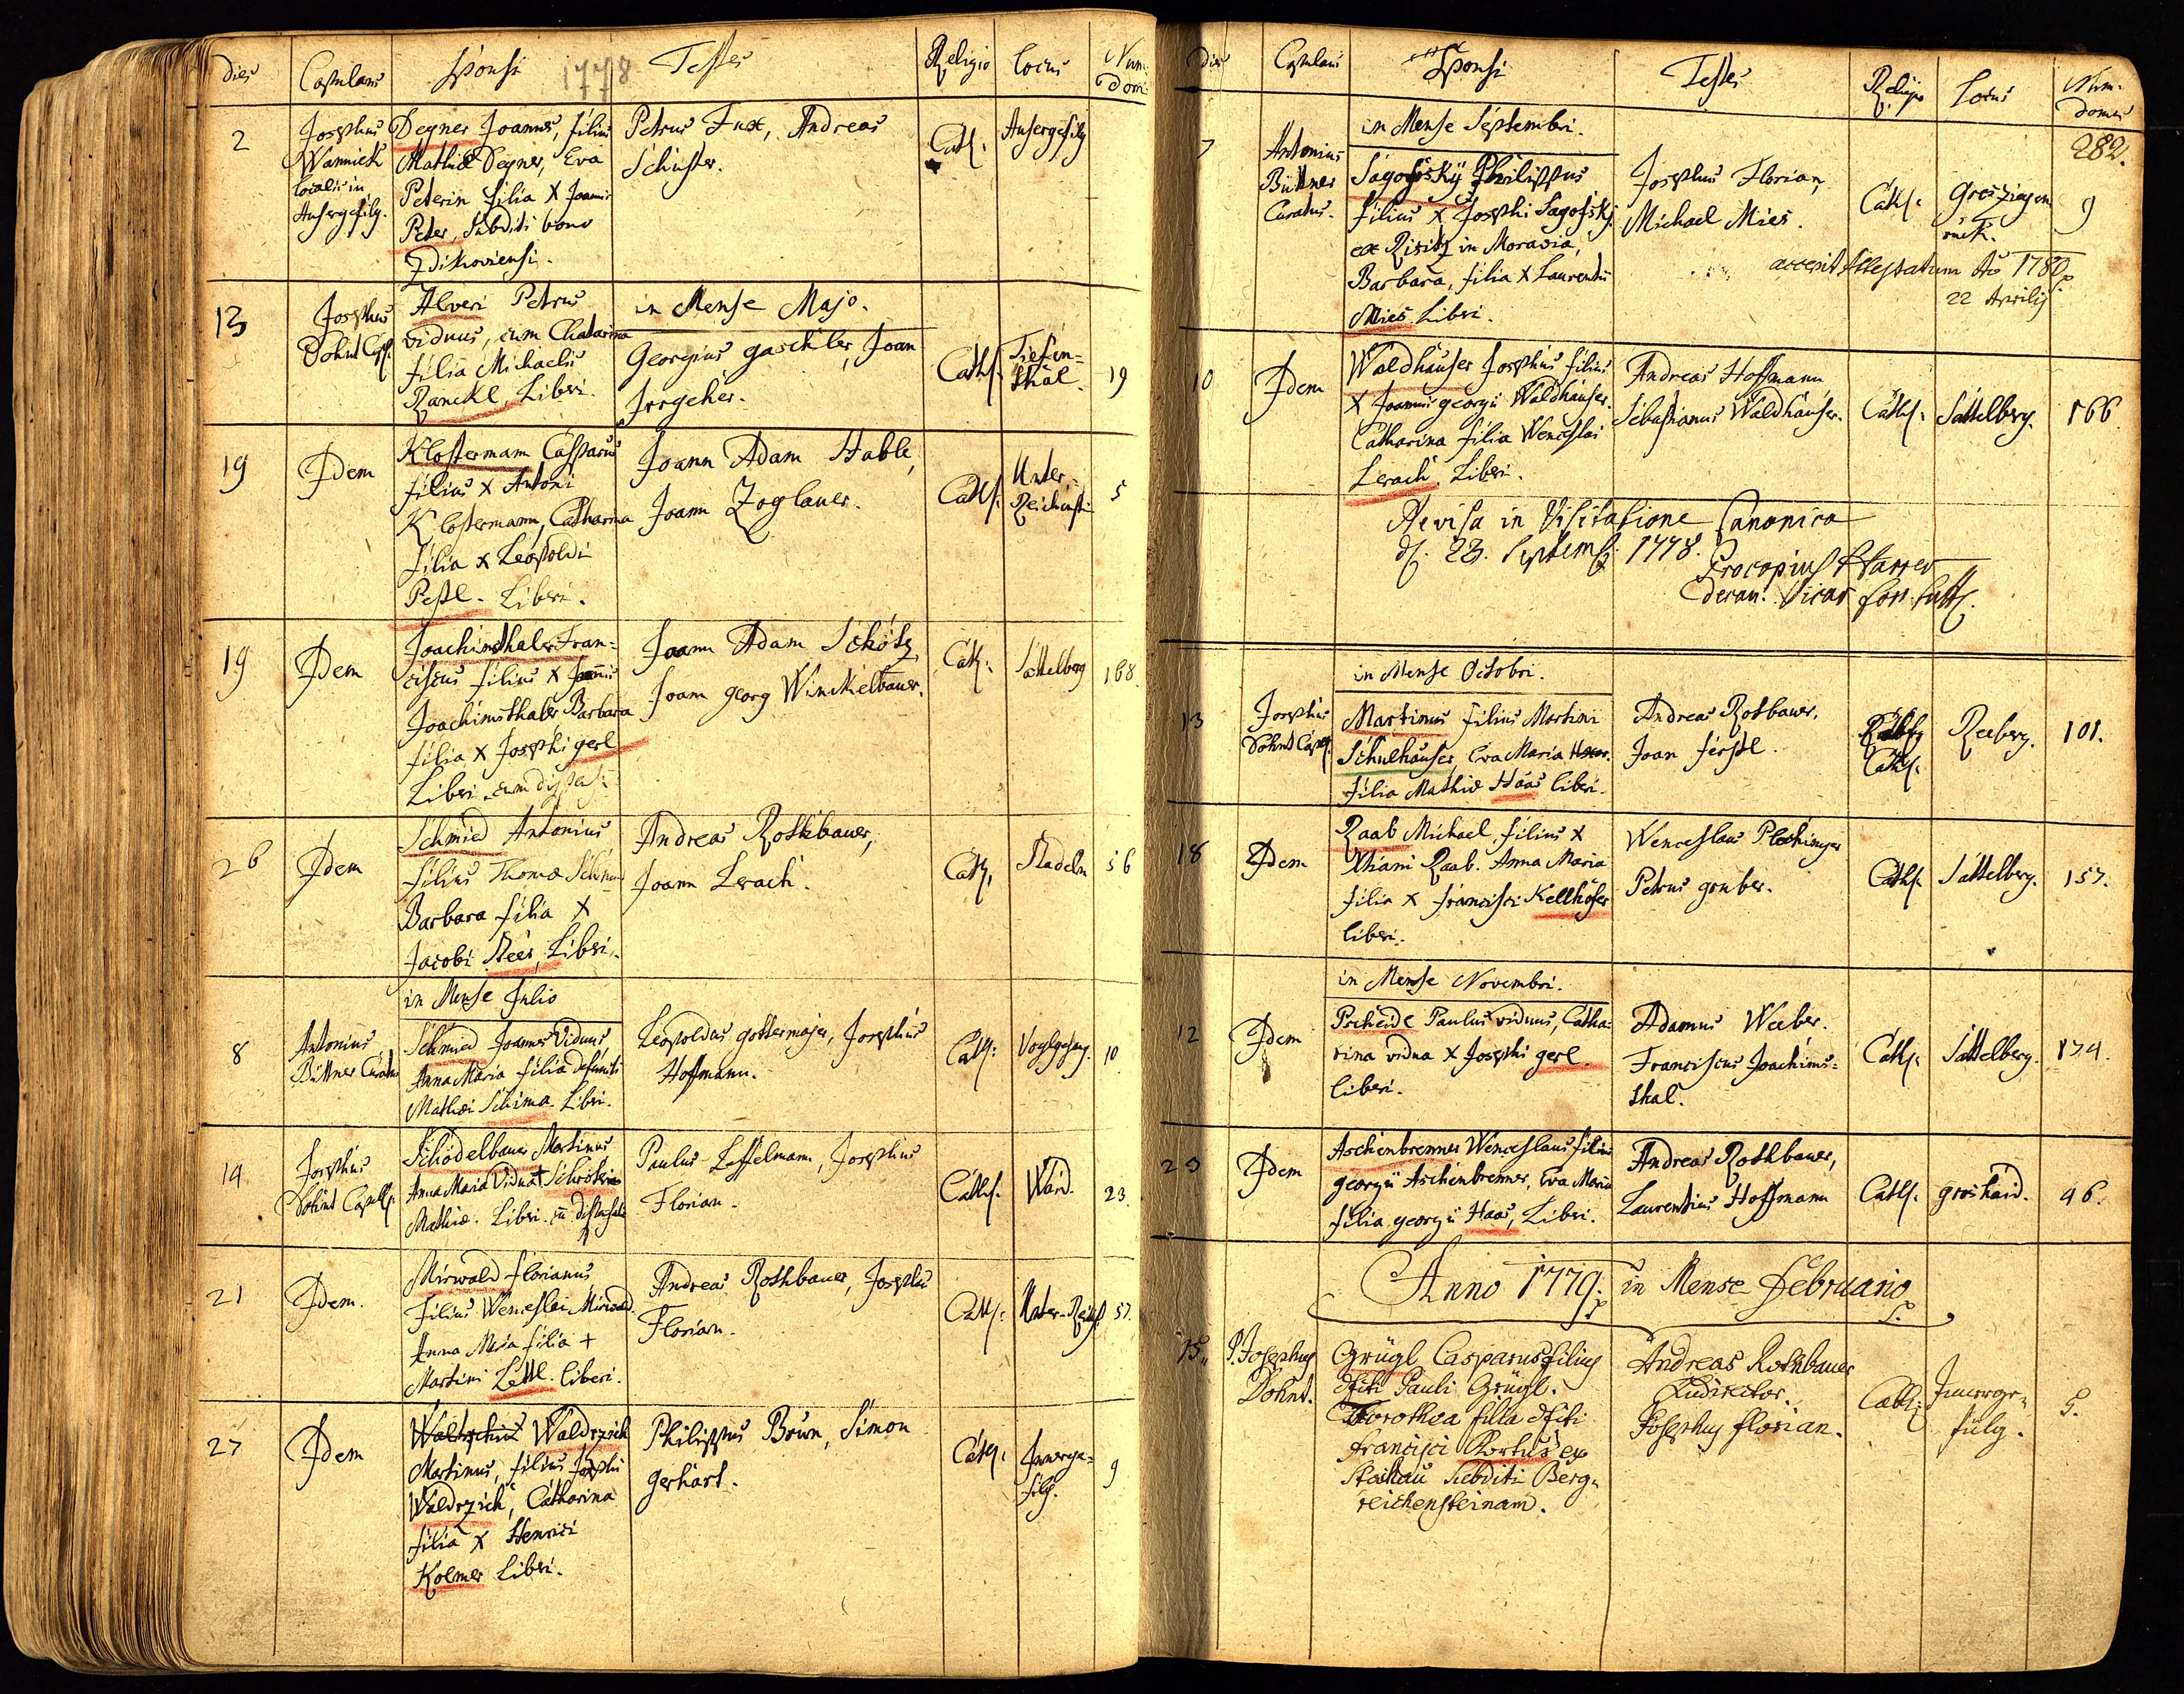 dies Copulans Sponsi 1778 Testes Religio Locus Num: Dom:
2
Josephus
Wannick
Localis in
Ausergefilg.
Degner Joannes, filius
Mathiæ Degner, Eva
Peterin filia X Joannis
Peter, Subditi bono
Zdikoviensi.
Petrus Fux, Andreas
Schuster.
Cath:
Ausergefilg
13
Josephus
Dohnt Cap.
Alveri Petrus
viduus, cum Chatarina
filia Michaelis
Ranckl, Liberi.
in Mense Majo.
Georgius gaschler, Joan
Irrgeher.
Cath:
Tiefen=
thal.
19
19
Idem
Klostermann Casparus
filius X Antoni
Klostermann, Catharina
filia X Leopoldi
Pestl. Liberi.
Joann Adam Hable,
Joann Zoglauer.
Cath:
Unter=
Reichenst:
5
19
Idem
Joachimsthaler Fran=
ciscus filius X Joannis
Joachimsthaler Barbara
filia X Josephi gerl
Liberi cum dispens:
Joann Adam Schötz,
Joann georg Winckelbauer.
Cath:
Sattelberg
168
26
Idem
Schmied Antonius
filius Thomæ Schmied
Barbara filia X
Jacobi Neer, Liberi.
Andreas Rothbauer,
Joann Lerach.
Cath:
Stadeln
56
8
Antonius
Büttner Curatus
in Mense Julio
Schmied Joannes Viduus
Anna Maria filia defuncti
Mathæi Schima. Liberi.
Leopoldus gottermajer, Josephus
Hoffmann.
Cath:
Voglgesang.
10
14
Josephus
Dohnt Capell.
Schödelbauer Martinus
Anna Maria Vidua +
Mathiæ. Liberi. cum dispensat:
Paulus Leffelmann, Josephus
Florian.
Cath:
Waid.
23.
21
Idem.
Mirwald Florianus
filius Wenceslai Mirwald.
Anna Maria filia +
Martini Lettl. liberi.
Andreas Rothbauer, Josephus
Florian.
Cath:
Unter-Reich:
57.
27
Idem
Waldrzich
Martinus, filius Josephi
Waldrzich, Catharina
filia X Henrici
Kolmer Liberi.
Philippus Brun, Simon
gerhart.
Cath:
Innerge=
filg.
9
Dies Copulans Sponsi Testes Religio Locus Num: Domus
282.
7
Antonius
Büttner
Curatus.
in Mense Septembri.
Sagofsky Philippus
filius X Josephi Sagofsky.
ex Risitz in Moravia,
Barbara, filia X Laurentii
Mies. Liberi.
Josephus Florian,
Michael Mies.
Cath:
Groszigen
ruck.
9
accepit Attestatum Ao 1780
22 Aprilis
10
Idem
Waldhauser Josephus filius
X Joannis georgii Waldhauser.
Catharina filia Wenceslai
Lerach. Liberi.
Andreas Hoffmann
Sebastianus Waldhauser.
Cath:
Sattelberg.
166
Revisa in Visitatione Canonica
d. 23. Septemb. 1778.
Procopius
Vicar
in Mense Octobri.
13
Josephus
Dohnt Capell.
Martinus filius Martini
Schulhauser, Eva Maria
filia Mathiæ Haas liberi.
Andreas Rotbauer.
Joan ferstl.
Cath:
Reeberg.
101.
18
Idem
Raab Michael, filius X
Raab. Anna Maria
filia X Francisci Kellhofer
liberi.
Wenceslaus Plechinger
Petrus gruber.
Cath:
Sattelberg.
157.
in Mense Novembri.
12
Idem
Pscheidl Paulus viduus, Catha=
rina vidua X Josephi gerl.
liberi.
Adamus Weeber.
Franciscus Joachims=
thal.
Cath:
Sattelberg.
174.
23
Idem
Aschenbrenner Wenceslaus filius
georgii Aschenbrenner, Eva Maria
filia georgii Haas, Liberi.
Andreas Rothbauer,
Laurentius Hoffmann
Cath:
groshaid.
46.
Anno 1779. in Mense Februario
15.
P. Josephus
Dohnt.
Grügl Casparus filius
dfcti Pauli Grügl.
Dorothea filia dfcti
Francisci Portus ex
Stachau Subditi Berg=
reichensteinam.
Andreas Rothbauer
Ludirector.
Josephus Florian.
Cath:
Innerge=
filg.
5.